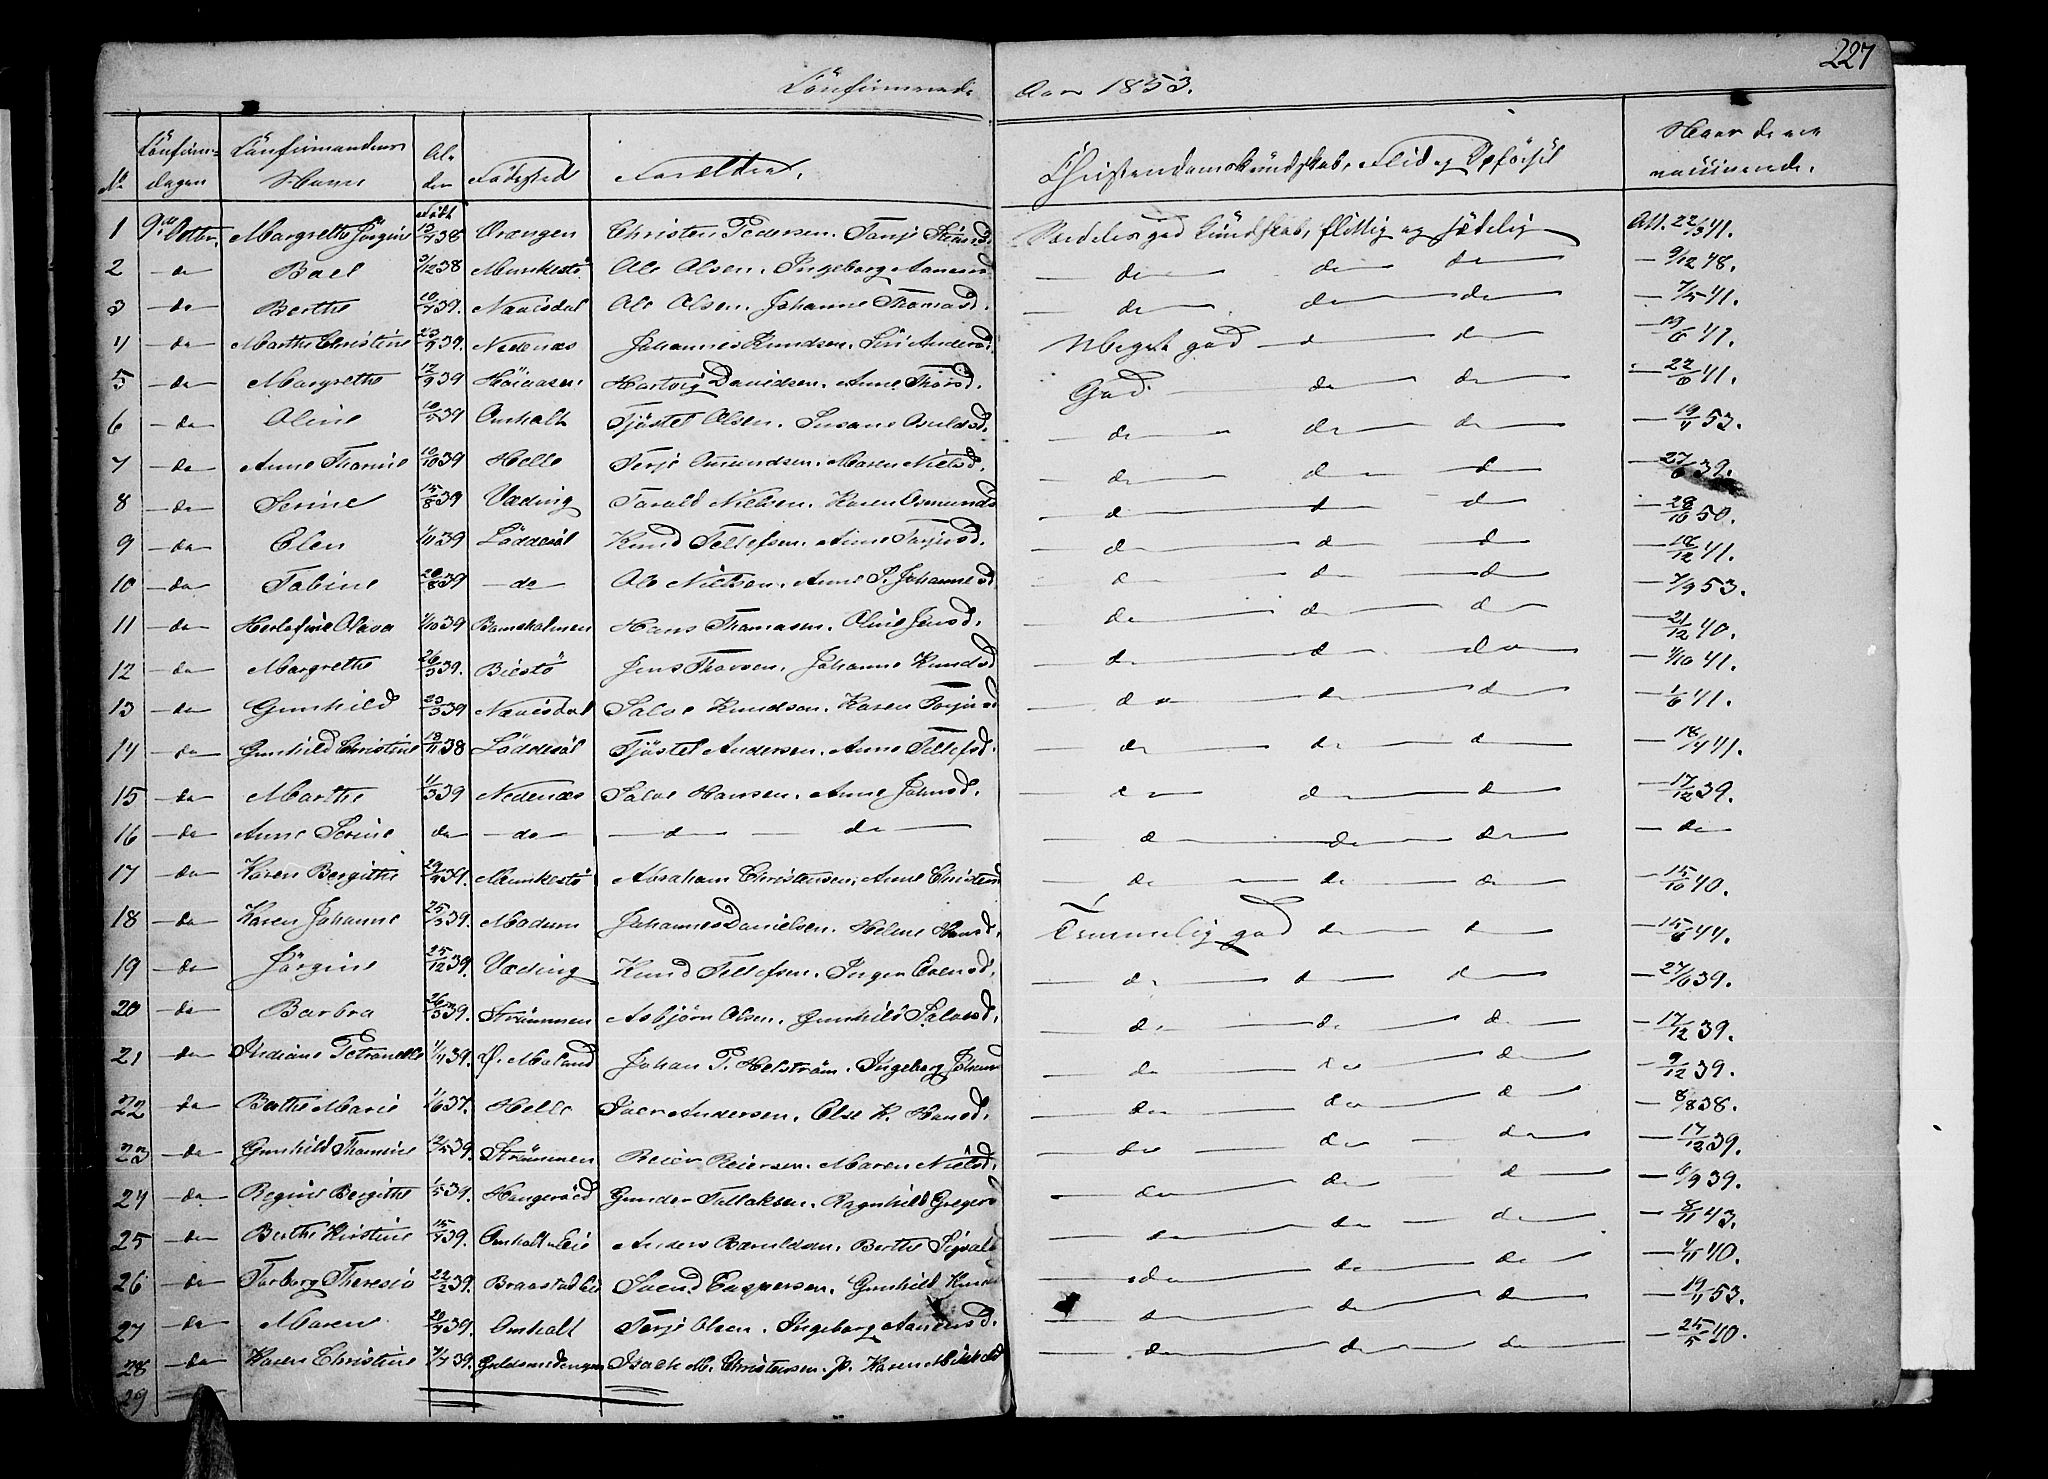 227
Confirmerede Aar 1853.
No Confirm: dagen Confirmandens Navn Al- der Fødested Forældre. Christendomskundskab, Flid og Opførsel Naar de ere vaccinerede.
1 9de Octbr. Margrethe Jørgine Født 13/7 38 Vrengen Christen Pedersen. Særdeles god Kundskab, flittig og sædelig Att. 22/5 41.
2 – do – Boel 3/12 38 Munkestø Ole Olsen. Ingeborg Aanensd – do – do – do – 9/12 48.
3 – do – Berthe 10/7 39. Nævisdal Ole Olsen. Johanne Thomasd. – do – do – do – 7/5 41.
4 – do – Marthe Christine 23/9 39. Nedenæs Johannes Knudsen. Siri Andersd. Meget god – do – do – 19/6 41.
5 – do – Margrethe 12/9 39 Høiaasen. Hartvig Davidsen. Anne Thorsd. God – do – do – 22/6 41.
6 – do – Oline 10/5 39 Omholt Tjøstel Olsen. Susanne – do – do – do – 19/4 53.
7 – do – Anne Thomine 10/10 39 Helle Terje Omundsen. Maren Nielsd. – do – do – do – 27/6 39.
8 – do – Serine 15/8 39 Væding Tarald Nielsen. Karen Osmunds – do – do – do – 28/10 50.
9 – do – Elen 1/11 39 Løddesøl Knud Tellefsen. Anne Terjesd. – do – do – do – 18/12 41.
10 – do – Tobine 20/8 39 – do – Ole Nielsen. Anne S. Johannesd – do – do – do – 7/9 53.
11 – do – Olava 1/10 39 Hans Thomasen. Oline Jensd. – do – do – do – 21/12 40.
12 – do – Margrethe 26/3 39. Biestø Jens Thorsen. Johanne Knudsd – do – do – do – 4/10 41.
13 – do – Gunhild 23/3 39 Nævisdal Salve Knudsen. Karen Terjesd – do – do – do – 1/6 41.
14 – do – Gunhild Christine 13/11 38 Løddesøl Tjøstel Andersen. Anne Tellefsd. – do – do – do – 18/4 41.
15 – do – Marthe 11/3 39 Nedenæs Salve Hansen. Anne Johnsd. – do – do – do – 17/12 39.
16 – do – Anne Serine do – do – – do – do – do – do – do – do
17 – do – Karen Bergithe 29/9 39. Munkestø Abraham Christensen. Anne Christensd – do – do – do – 15/10 40.
18 – do – Karen Johanne 25/3 39. Modum Johannes Danielsen. Helene Hansd. Temmelig god do – do – 15/6 44.
19 – do – Jørgine 25/12 39. Væding Knud Tellefsen. Inger Evensd. – do – do – do – 27/6 39.
20 – do – Barbra 26/3 39. Strømmen Asbjørn Olsen. Gunhild Salvesd. – do – do – do – 17/12 39.
21 – do – Indiane Petronelle 4/11 39. Ø. Moland Johan P. Helstrøm. Ingeborg Johans – do – do – do – 9/12 39.
22 – do – Berthe Marie 1/6 37. Helle Iver Andersen. Else K. Hansd. – do – do – do – 8/8 38.
23 – do – Gunhild Thomine 12/5 39. Strømmen Reier Reiersen. Maren Nielsd. – do – do – do – 17/12 39.
24 – do – Regine Bergithe 1/5 39. Gunder Tallaksen. Ragnhild Gregersd – do – do – do – 6/9 39.
25 – do – Berthe Kirstine 15/7 39. Omholt Eie Anders Berthe Sigvald – do – do – do – 8/11 43.
26 – do – Torborg Theresia 22/2 39. Braastad Eie Svend Caspersen. Gunhild Knud – do – do – do – 4/11 40.
27 – do – Maren 20/7 39. Omholt Terje Olsen. Ingeborg Aanensd. – do – do – do – 19/11 53.
28 – do – Karen Christine 7/7 39. Guldsmedengen Isach M. Christensen. Karen – do – do – do – 25/5 40.
29